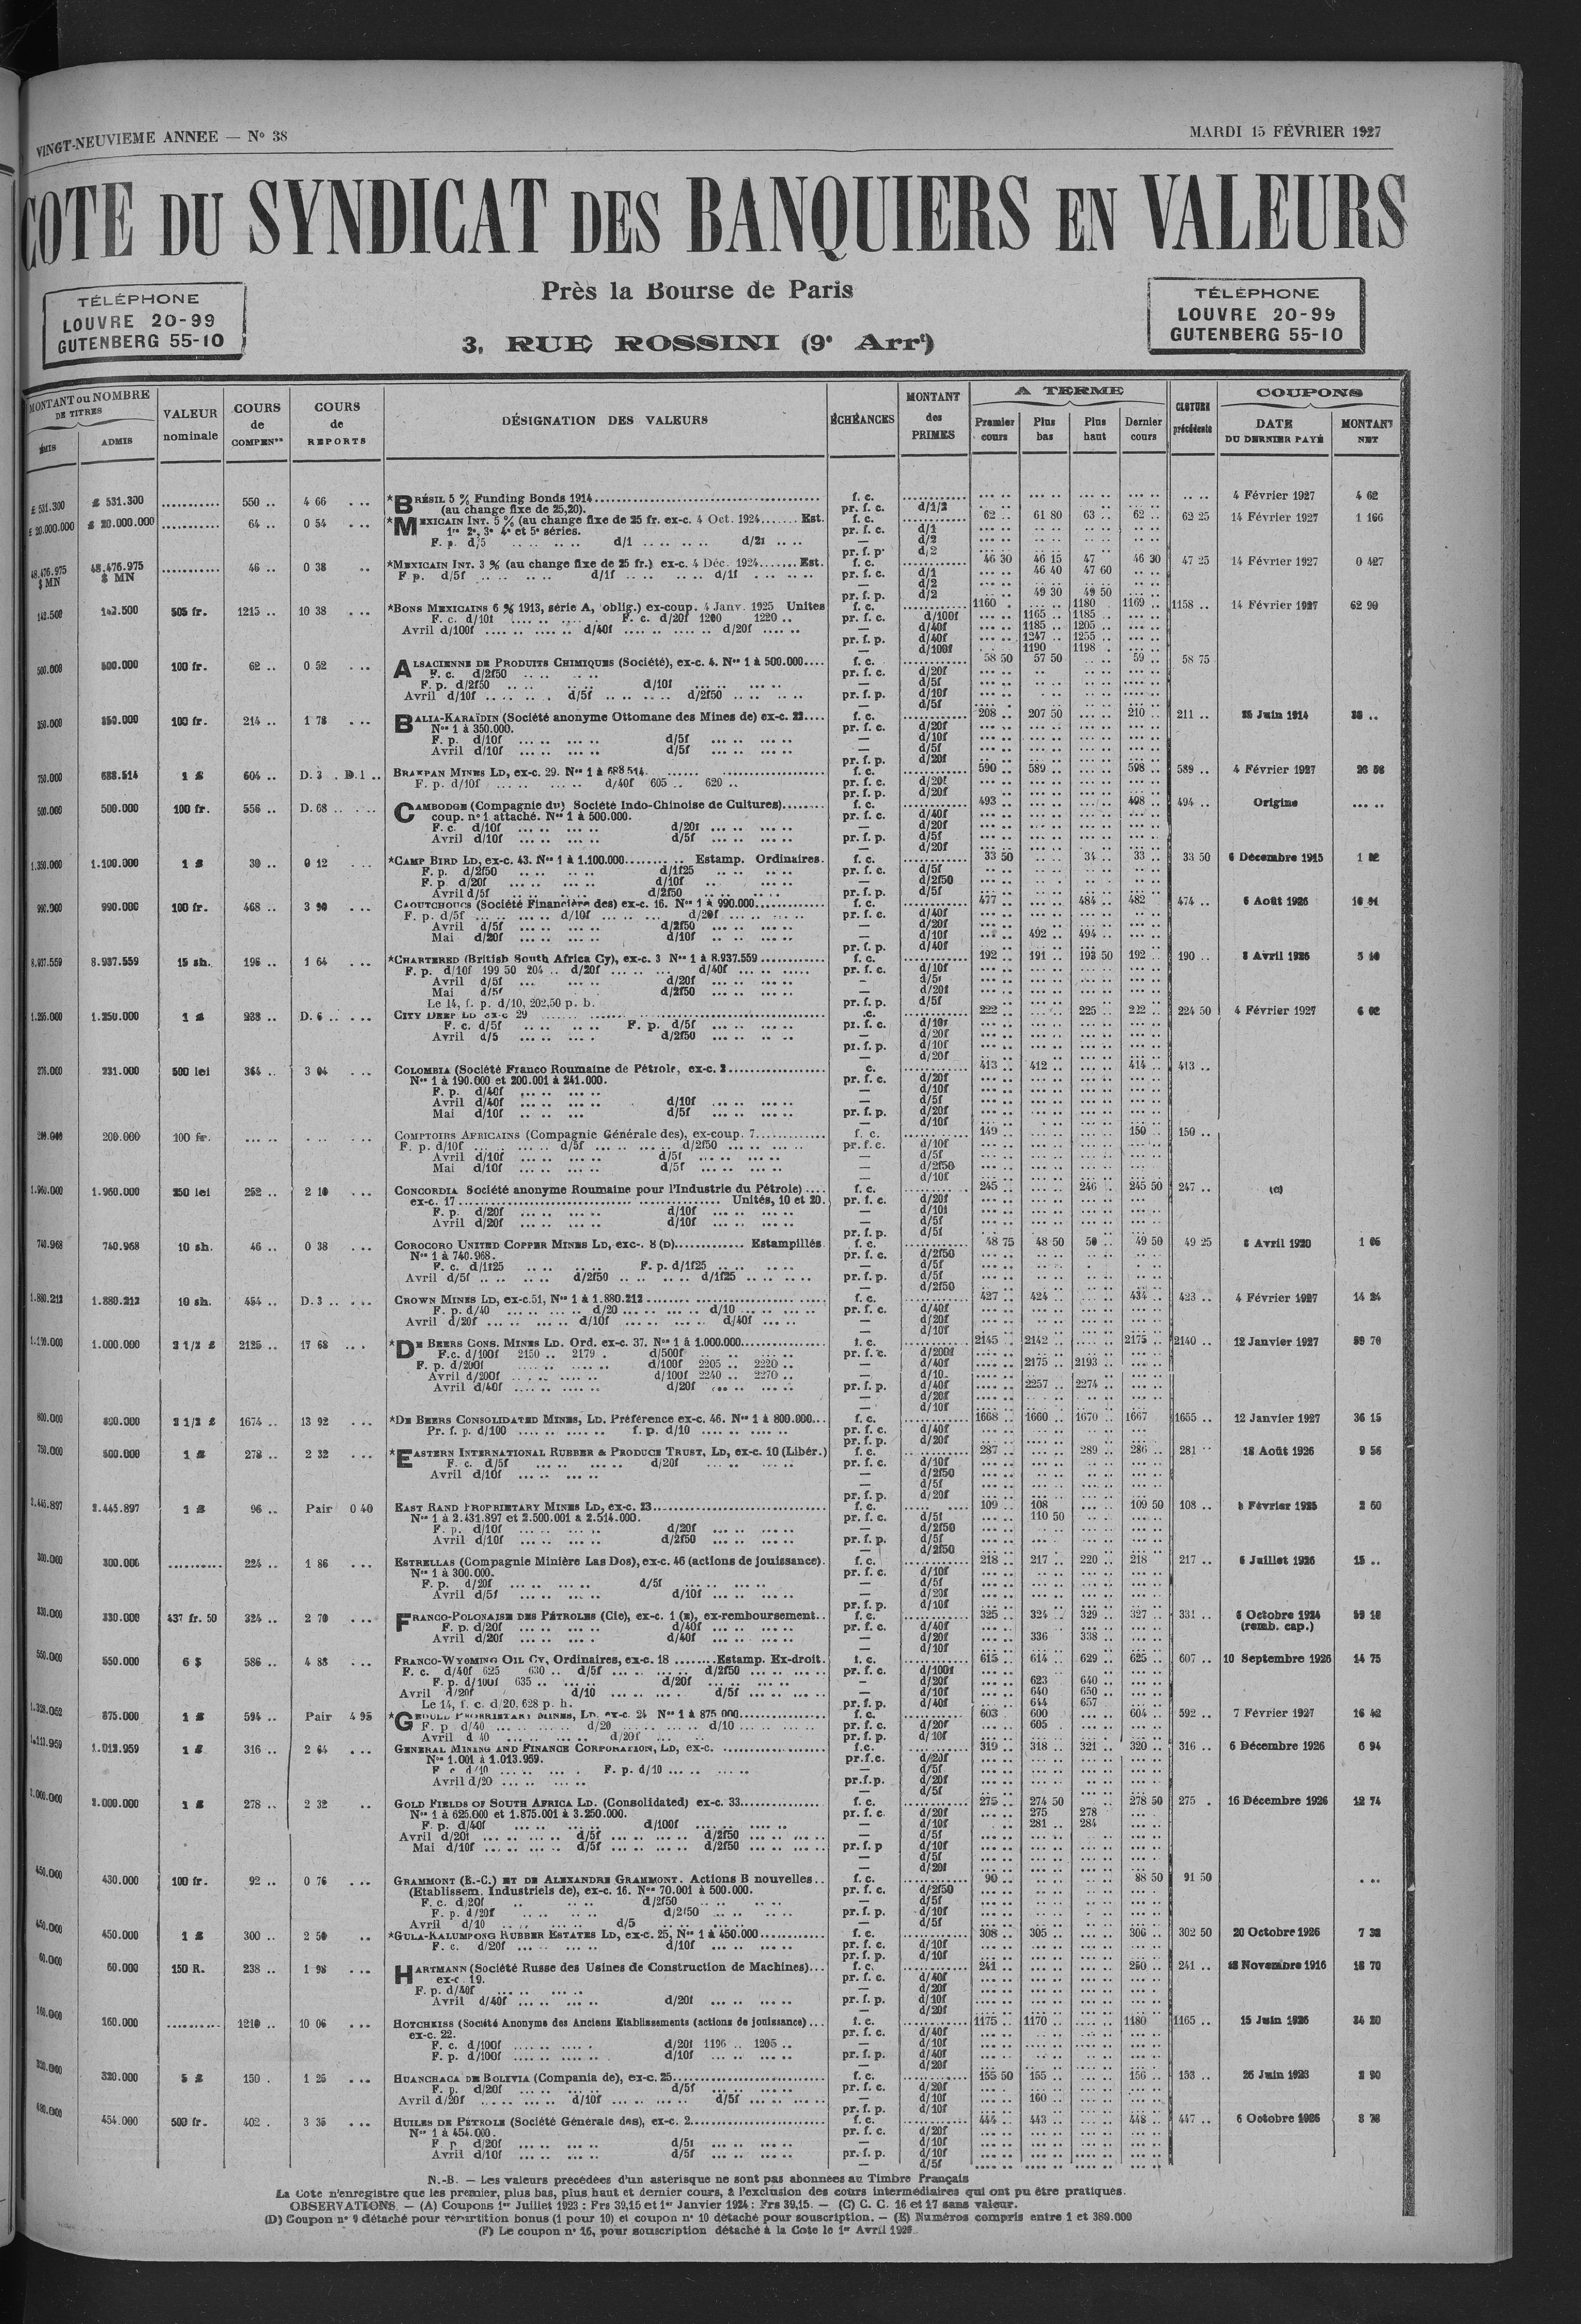 VINGT-NEUVIEME ANNEE — Nº 38
MARDI 15 FÉVRIER 1927
COTE DU SYNDICAT DES BANQUIERS EN VALEURS
Près la Bourse de Paris
3, RUE ROSSINI (9e Arrt)
TÉLÉPHONE
LOUVRE 20-99
GUTENBERG 55-10
TÉLÉPHONE
LOUVRE 20-99
GUTENBERG 55-10
MONTANT ou NOMBRE DE TITRES
ÉMIS ADMIS
VALEUR nominale
COURS de COMPENon
COURS de REPORTS
DÉSIGNATION DES VALEURS
ÉCHÉANCES
MONTANT des PRIMES
A TERME
Premier cours Plus bas Plus haut Dernier cours
CLOTURE précédente
COUPONS
DATE DU DERNIER PAYÉ
MONTANT NET
£ 531.300 £ 531.300 ........... 550 .. 4 66 ... *BRÉSIL 5 % Funding Bonds 1914 f. c. 4 Février 1927 4 62
(au change fixe de 25,20). pr. f. c. d/1/2
£ 20.000.000 £ 20.000.000 ........... 64 .. 0 54 ... *MEXICAIN INT. 5 % (au change fixe de 25 fr. ex-c. 4 Oct. 1924....... Est. f. c. 62 .. 61 80 63 .. 62 .. 62 25 14 Février 1927 1 166
1re 2e, 3e 4e et 5e séries. pr. f. c. d/1
F. p. d/5 .. .. .. .. d/1 .. .. .. .. d/21 .. .. — d/2
pr. f. p. d/2
48.476.975 $ MN 48.476.975 $ MN ........... 46 .. 0 38 ... *MEXICAIN INT. 3 % (au change fixe de 25 fr.) ex-c. 4 Déc. 1924....... Est. f. c. 46 30 46 15 47 46 30 47 25 14 Février 1927 0 427
F p. d/5f .. .. .. .. d/1f .. .. .. .. d/1f .. .. .. .. pr. f. c. d/1 46 40 47 60
— d/2
pr. f. p. d/2 49 30 49 50
142.500 142.500 505 fr. 1215 .. 10 38 ... *BONS MEXICAINS 6 % 1913, série A, oblig.) ex-coup. 4 Janv. 1925 Unites f. c. 1160 . 1180 . 1169 .. 1158 .. 14 Février 1927 62 99
F. c. d/10f .... .. .... .. F. c. d/20f 1200 1220 .. pr. f. c. d/100f 1165 .. 1185 ..
Avril d/100f .... .. .... .. d/40f .... .. .... .. d/20f .... .. — d/40f 1185 .. 1205 ..
pr. f. p. d/40f 1247 .. 1255 ..
— d/100f 1190 1198 .
500.000 500.000 100 fr. 62 .. 0 52 ... ALSACIENNE DE PRODUITS CHIMIQUES (Société), ex-c. 4. Nos 1 à 500.000.... f. c. 58 50 57 50 59 .. 58 75
F. c. d/2f50 .. .. .. .. pr. f. c. d/20f
F. p. d/2f50 .. .. .. .. d/10f ... .. ... .. — d/5f
Avril d/10f .. .. .. .. d/5f .. .. .. .. d/2f50 .. .. .. .. pr. f. p. d/10f
— d/5f
350.000 350.000 100 fr. 214 .. 1 78 ... BALIA-KARAÏDIN (Société anonyme Ottomane des Mines de) ex-c. 22.... f. c. 208 .. 207 50 210 .. 211 .. 25 Juin 1914
Nos 1 à 350.000. pr. f. c. d/20f
F. p. d/10f ... .. ... .. d/5f ... .. ... .. — d/10f
Avril d/10f ... .. ... .. d/5f ... .. ... .. — d/5f
pr. f. p. d/20f
750.000 688.514 1 £ 604 .. D. 3 . D.1 .. BRAKPAN MINES LD, ex-c. 29. Nos 1 à 688.514. f. c. 590 .. 589 .. 598 .. 589 .. 4 Février 1927
F. p. d/10f ... .. ... .. d/40f 605 .. 620 .. pr. f. c. d/20f
pr. f. p. d/20f
500.000 500.000 100 fr. 556 .. D. 68 .. CAMBODGE (Compagnie du) Société Indo-Chinoise de Cultures)........ f. c. 493 .. 498 .. 494 .. Origine ... ..
coup. nº 1 attaché. Nos 1 à 500.000. pr. f. c. d/40f
F. c. d/10f ... .. ... .. d/20f ... .. ... .. — d/20f
Avril d/10f ... .. ... .. d/5f ... .. ... .. pr. f. p. d/5f
— d/20f
1.350.000 1.100.000 1 £ 30 .. 0 12 ... *CAMP BIRD LD, ex-c. 43. Nos 1 à 1.100.000........ .. Estamp. Ordinaires. f. c. 33 50 34 .. 33 .. 33 50 6 Décembre 1915
F. p. d/2f50 .. .. .. .. d/1f25 .. .. .. .. pr. f. c. d/5f
F. p. d/20f ... .. ... .. d/10f .. ... .. — d/2f50
Avril d/5f .. .. .. .. d/2f50 .. .. .. .. pr. f. p. d/5f
990.000 990.000 100 fr. 468 .. 3 90 ... CAOUTCHOUCS (Société Financière des) ex-c. 16. Nos 1 à 990.000............ f. c. 477 .. 484 .. 482 474 .. 6 Août 1926
F. p. d/5f ... .. ... .. d/10f ... .. ... .. d/20f ... .. ... .. pr. f. c. d/40f
Avril d/5f ... .. ... .. d/2f50 ... .. ... .. — d/20f
Mai d/20f ... .. ... .. d/10f ... .. ... .. — d/10f 492 .. 494 ..
pr. f. p. d/40f
8.937.559 8.937.559 15 sh. 196 .. 1 64 ... *CHARTERED (British South Africa Cy), ex-c. 3 Nos 1 à 8.937.559 f. c. 192 .. 191 .. 193 50 192 .. 190 .. 8 Avril 1926 5 40
F. p. d/10f 199 50 204 .. d/20f ... .. ... d/40f ... .. ... .. pr. f. c. d/10f
Avril d/5f ... ... .. d/20f ... .. ... .. — d/5f
Mai d/5f d/2f50 ... .. ... .. — d/20f
Le 14, f. p. d/10, 202,50 p. b. pr. f. p. d/5f
1.295.000 1.250.000 1 £ 238 .. D. 6 .. ... CITY DEEP LD ex-c 29 .c. 222 .. 225 .. 222 .. 224 50 4 Février 1927 6 02
F. c. d/5f .. .. .. .. F. p. d/5f ... .. ... .. pr. f. c. d/10f
Avril d/5 ... .. ... . d/2f50 ... .. .. .. — d/20f
pr. f. p. d/10f
— d/20f
276.000 231.000 500 lei 364 .. 3 04 ... COLOMBIA (Société Franco Roumaine de Pétrole, ex-c. 2 c. 413 .. 412 .. 414 .. 413 ..
Nos 1 à 190.000 et 200.001 à 241.000. pr. f. c. d/20f
F. p. d/40f ... .. ... .. — d/10f
Avril d/40f ... .. ... .. d/10f ... .. ... .. — d/5f
Mai d/10f ... .. ... d/5f ... .. ... .. pr. f. p. d/20f
— d/10f
200.000 200.000 100 fr. ... .. . .. ... COMPTOIRS AFRICAINS (Compagnie Générale des), ex-coup. 7............ f. c. 149 .. 150 .. 150 ..
F. p. d/10f ... .. ... .. d/5f ... .. ... .. d/2f50 ... .. ... .. pr. f. c. d/10f
Avril d/10f ... .. ... .. d/5f ... .. ... .. — d/5f
Mai d/10f ... .. ... .. d/5f ... .. ... .. — d/2f50
— d/10f
1.960.000 1.960.000 250 lei 252 .. 2 10 ... CONCORDIA Société anonyme Roumaine pour l'Industrie du Pétrole) .... f. c. 245 .. 246 .. 245 50 247 .. (c)
ex-c. 17 Unités, 10 et 20. pr. f. c. d/20f
F. p. d/20f ... .. ... .. d/10f ... .. ... .. — d/10f
Avril d/20f ... .. ... .. d/10f ... .. ... .. — d/5f
pr. f. p. d/5f
740.968 740.968 10 sh. 46 .. 0 38 ... COROCORO UNITED COPPER MINES LD, exc-. 8 (D)............ Estampillés f. c. 48 75 48 50 50 .. 49 50 49 25 6 Avril 1920 1 05
Nos 1 à 740.968. pr. f. c. d/2f50
F. c. d/1f25 .. .. .. .. F. p. d/1f25 .. .. .. .. — d/5f
Avril d/5f .. .. .. .. d/2f50 .. .. .. .. d/1f25 .. .. .. .. pr. f. p. d/5f
— d/2f50
1.880.212 1.880.212 10 sh. 454 .. D. 3 .. ... CROWN MINES LD, ex-c.51, Nos 1 à 1.880.212 f. c. 427 .. 424 .. 434 .. 423 .. 4 Février 1927 14 24
F. p. d/40 ... .. ... .. d/20 ... .. ... .. d/10 ... .. ... .. pr. f. c. d/40f
Avril d/20f ... .. ... .. d/10f ... .. ... .. d/40f ... .. — d/20f
— d/10f
1.000.000 2 1/2 £ 2125 .. 17 68 ... *DE BEERS CONS. MINES LD. Ord. ex-c. 37. Nos 1 à 1.000.000 f. c. 2145 2142 2175 .. 2140 .. 12 Janvier 1927 59 70
F.c. d/100f 2150 .. 2179 . d/500f pr. f. c. d/200f
F. p. d/200f .... .. .... .. d/100f 2205 .. 2220 .. — d/40f 2175 .. 2193 ..
Avril d/200f .... .. .... .. d/100f 2240 .. 2270 .. — d/10
Avril d/40f .... .. .... .. d/20f .... .. .... .. pr. f. p. d/40f 2257 .. 2274 ..
— d/20f
— d/10f
800.000 800.000 2 1/2 £ 1674 .. 13 92 ... *DE BEERS CONSOLIDATED MINES, LD. Préférence ex-c. 46. Nos 1 à 800.000... f. c. 1668 .. 1660 .. 1670 .. 1667 1655 .. 12 Janvier 1927 36 15
Pr. f. p. d/100 .... .. .... .. f. p. d/10 .... .. .... .. pr. f. c. d/40f
pr. f. p. d/20f
750.000 500.000 1 £ 278 .. 2 32 ... *EASTERN INTERNATIONAL RUBBER & PRODUCE TRUST, LD, ex-c. 10 (Libér.) f. c. 287 .. 289 .. 286 .. 281 .. 18 Août 1926 9 56
F. c. d/5f ... .. ... .. d/20f ... .. ... .. pr. f. c. d/10f
Avril d/10f ... .. ... .. — d/2f50
— d/5f
pr. f. p. d/20f
2.445.897 2.445.897 1 £ 96 .. Pair 0 40 EAST RAND PROPRIETARY MINES LD, ex-c. 23 f. c. 109 .. 108 109 50 108 .. Février 1925 2 60
Nos 1 à 2.431.897 et 2.500.001 à 2.514.000. pr. f. c. d/5f 110 50
F. p. d/10f ... .. ... .. d/20f ... .. ... .. — d/2f50
Avril d/10f ... .. ... .. d/2f50 ... .. ... .. pr. f. p. d/5f
— d/2f50
300.000 300.000 .......... 224 .. 1 86 ... ESTRELLAS (Compagnie Minière Las Dos), ex-c. 46 (actions de jouissance). f. c. 218 .. 217 .. 220 .. 218 217 .. 6 Juillet 1926 15 ..
Nos 1 à 300.000. pr. f. c. d/10f
F. p. d/20f ... .. ... .. d/5f ... .. ... .. — d/5f
Avril d/5f ... .. ... .. d/10f ... .. ... .. — d/20f
pr. f. p. d/10f
330.000 330.000 437 fr. 50 324 .. 2 70 ... FRANCO-POLONAISE DES PÉTROLES (Cie), ex-c. 1 (E), ex-remboursement.. f. c. 325 .. 324 .. 329 .. 327 .. 331 .. 6 Octobre 1924
F. p. d/20f ... .. ... .. d/40f ... .. ... .. pr. f. c. d/40f (remb. cap.)
Avril d/20f ... .. ... .. d/40f ... .. ... .. — d/20f 336 338 ..
— d/10f
550.000 550.000 6 $ 586 .. 4 88 ... FRANCO-WYOMING OIL CY, Ordinaires, ex-c. 18 ........Estamp. Ex-droit. f. c. 615 .. 614 .. 629 .. 625 .. 607 .. 10 Septembre 1926 14 75
F. c. d/40f 625 630 .. d/5f ... .. ... .. d/2f50 ... .. ... .. pr. f. c. d/100f
F. p. d/100f 635 .. ... .. d/20f ... .. ... .. — d/20f 623 640 ..
Avril d/20f d/10 ... .. ... .. d/5f ... .. ... .. — d/10f 640 650 ..
Le 14, f. c. d/20. 628 p. h. pr. f. p. d/40f 644 657
875.000 1 £ 594 .. Pair 4 95 *GEDULD PROPRIETARY MINES, LD. ex-c. 24 Nos 1 à 875 000 f. c. 603 . 600 604 .. 592 .. 7 Février 1927 16 42
F. p d/40 ... .. ... .. d/20 ... .. ... .. d/10 ... .. ... .. pr. f. c. d/20f 605 ..
Avril d 40 ... .. ... .. d/20f ... .. pr. f. p. d/10f
1.013.959 1 £ 316 .. 2 64 ... GENERAL MINING AND FINANCE CORPORATION, LD, ex-c. f.c. 319 .. 318 .. 321 .. 320 .. 316 .. 6 Décembre 1926 6 94
Nos 1.001 à 1.013.959. pr.f.c. d/20f
F c d/10 ... .. ... . F. p. d/10 ... .. ... .. — d/5f
Avril d/20 ... .. ... .. pr.f.p. d/20f
— d/5f
1 £ 278 .. 2 32 .. GOLD FIELDS OF SOUTH AFRICA LD. (Consolidated) ex-c. 33 f. c. 275 .. 274 50 278 50 275 . 16 Décembre 1926 12 74
Nos 1 à 625.000 et 1.875.001 à 3.250.000. pr. f. c. d/20f 275 278
F. p. d/40f ... .. ... .. d/100f ... .. ... .. — d/10f 281 .. 284
Avril d/20f ... .. ... .. d/5f ... .. ... .. d/2f50 ... .. ... .. — d/5f
Mai d/10f ... .. ... .. d/5f ... .. ... .. d/2f50 ... .. ... .. pr. f. p d/10f
— d/5f
— d/20f
430.000 100 fr. 92 .. 0 76 ... GRAMMONT (E.-C.) ET DE ALEXANDRE GRAMMONT. Actions B nouvelles.. f. c. 90 .. 88 50 91 50
(Etablissem. Industriels de), ex-c. 16. Nos 70.001 à 500.000. pr. f. c. d/2f50
F. c. d/20f .. .. .. d/2f50 ... .. .. .. — d/5f
F. p. d/20f .. .. .. .. d/2f50 ... .. ... .. pr. f. p. d/10f
Avril d/10 .. .. .. .. d/5 ... .. ... .. — d/5f
450.000 450.000 1 £ 300 .. 2 50 .. *GULA-KALUMPONG RUBBER ESTATES LD, ex-c. 25, Nos 1 à 450.000 f. c. 308 .. 305 .. 306 .. 302 50 20 Octobre 1926 7 32
F. c. d/20f ... .. ... .. d/10f ... .. ... .. pr. f. c. d/10f
pr. f. p. d/10f
60.000 60.000 150 R. 238 .. 1 98 ... HARTMANN (Société Russe des Usines de Construction de Machines)... f. c. 241 .. 250 .. 241 .. Novembre 1916 70
ex-c. 19. pr. f. c. d/40f
F. p. d/40f ... .. ... .. — d/20f
Avril d/40f ... .. ... .. d/20f ... .. ... .. pr. f. p. d/10f
— d/20f
160.000 160.000 .......... 1210 .. 10 06 ... HOTCHKISS (Société Anonyme des Anciens Etablissements (actions de jouissance) ... f. c. 1175 .. 1170 .. 1180 1165 .. 15 Juin 1926
ex-c. 22. pr. f. c. d/40f
F. c. d/100f .... .. .... . d/20f 1196 .. 1205 .. — d/10f
F. p. d/100f .... .. .... . d/10f .... .. .... .. pr. f. p. d/40f
— d/20f
320.000 320.000 5 £ 150 . 1 25 ... HUANCHACA DE BOLIVIA (Compania de), ex-c. 25 f. c. 155 50 155 .. 156 .. 153 .. 26 Juin 1923 90
F. p. d/20f ... .. ... .. d/5f ... .. ... .. pr. f. c. d/20f
Avril d/20f ... .. ... .. d/10f ... .. ... .. d/5f ... .. ... .. — d/10f 160 ..
pr. f. p. d/10f
454.000 500 fr. 402 . 3 35 ... HUILES DE PÉTROLE (Société Générale des), ex-c. 2 f. c. 444 .. 443 .. 448 .. 447 .. 6 Octobre 1926
Nos 1 à 454.000. pr. f. c. d/20f
F p d/20f ... .. ... .. d/5f ... .. ... .. — d/10f
Avril d/10f ... .. ... .. d/5f ... .. ... .. pr. f. p. d/10f
— d/5f
N.-B. — Les valeurs précédées d'un astérisque ne sont pas abonnées au Timbre Français
La Cote n'enregistre que les premier, plus bas, plus haut et dernier cours, à l'exclusion des cours intermédiaires qui ont pu être pratiqués.
OBSERVATIONS. — (A) Coupons 1er Juillet 1923 : Frs 39,15 et 1er Janvier 1924 : Frs 39,15. — (C) C. C. 16 et 17 sans valeur.
(D) Coupon nº 9 détaché pour répartition bonus (1 pour 10) et coupon nº 10 détaché pour souscription. — (E) Numéros compris entre 1 et 389.000
(F) Le coupon nº 16, pour souscription détaché à la Cote le 1er Avril 1926.